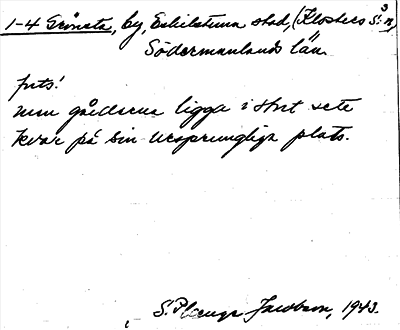 1-4 Grönsta, by, Eskilstuna stad, (Klosters sn)
Södermanlands län
futs!
men gårdarna ligga i stort sete
kvar på sin ursprungliga plats.
S. Jacobson, 1943.